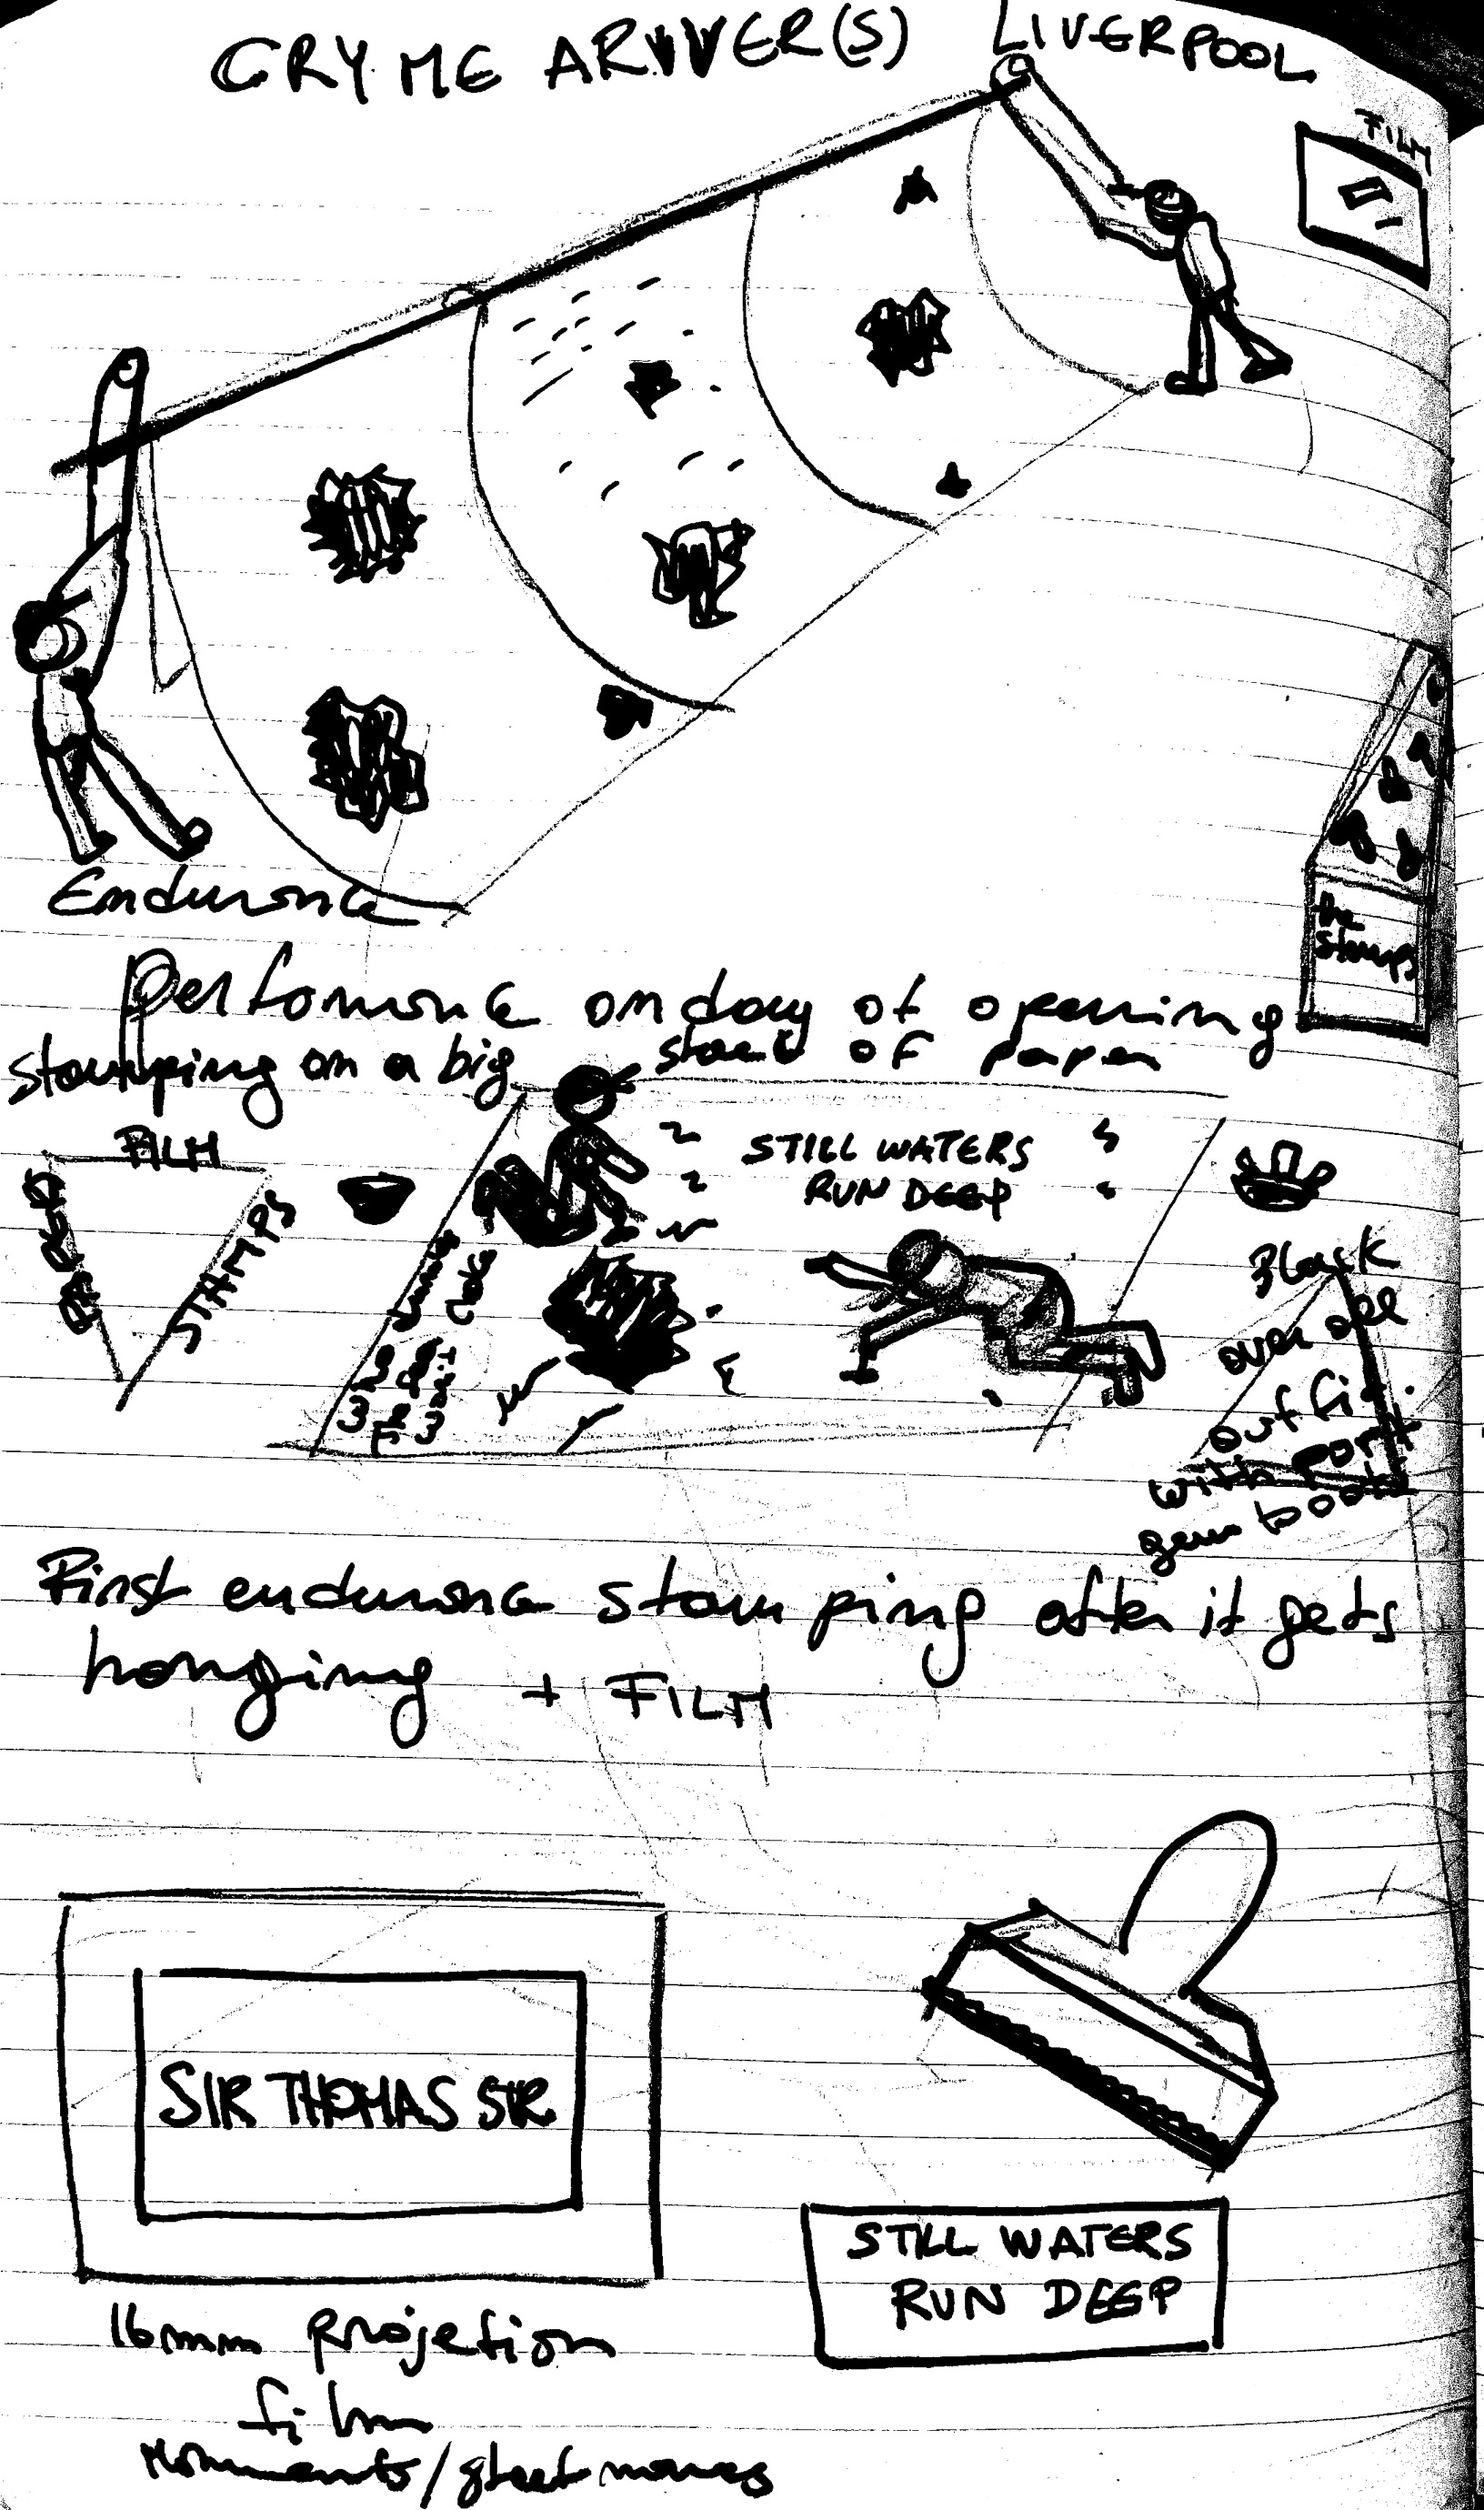 CRY ME A RIVVER(S) LIVERPOOL
FILM
Endurance
the
stamps
Performance on day of opening
stamping on a big stack of paper
FILM
STAMPS
STILL WATERS
RUN DEEP
Black
over all
outfit
with port
boots
First endurance stamping after it gets
hanging + FILM
SIR THOMAS STR
STILL WATERS
RUN DEEP
16mm projetion
film
Monuments/street names